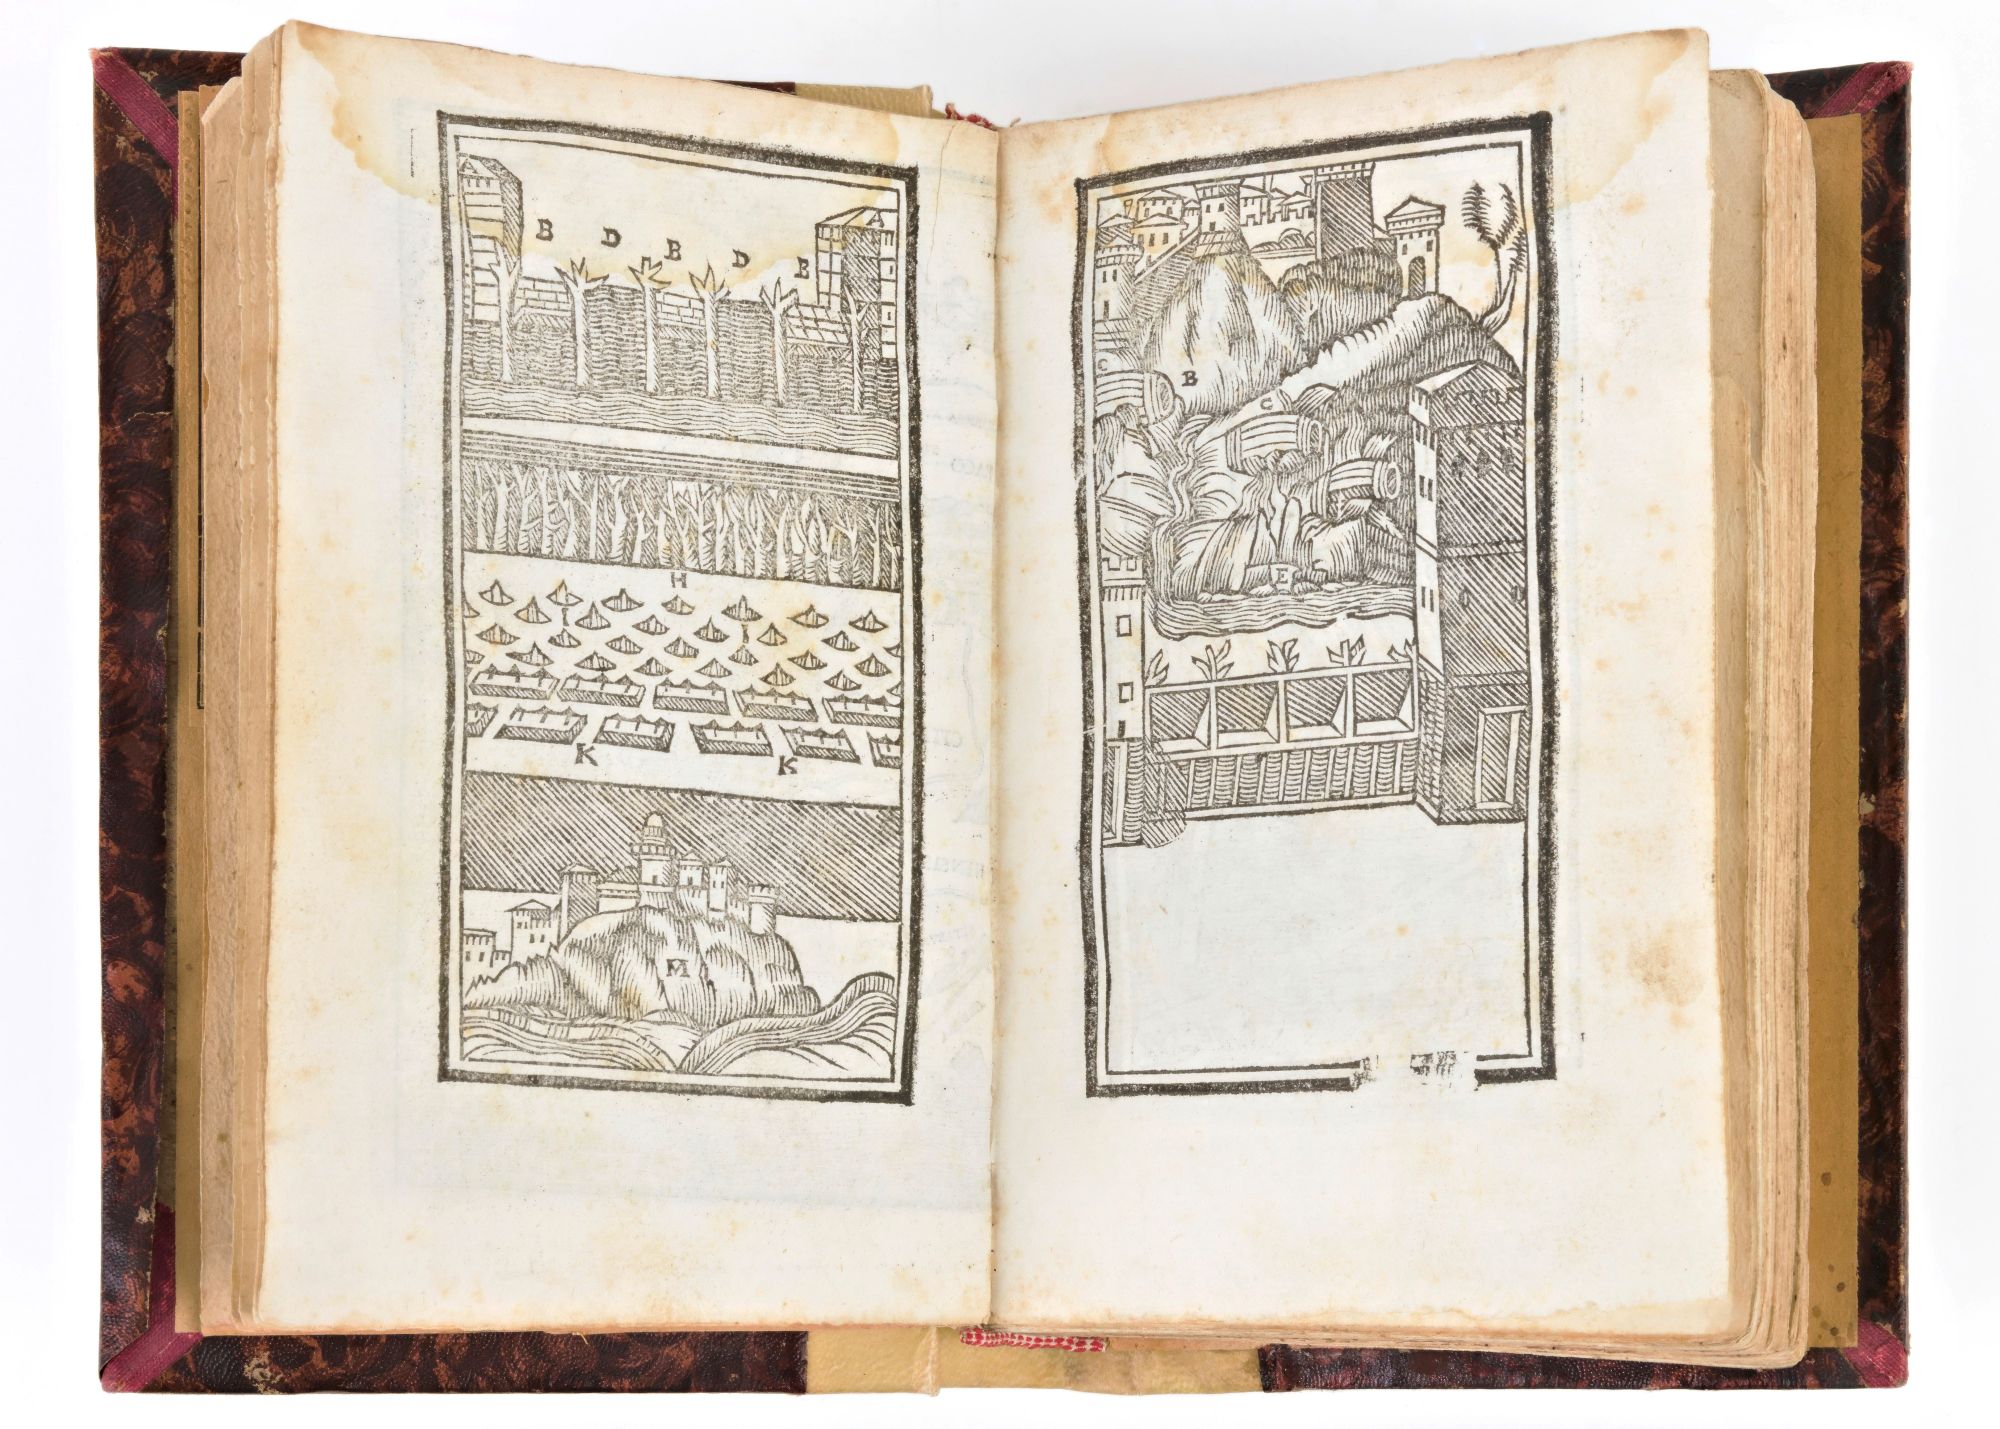 A
B D B D B
H
I I
K K
M
C B
C
E